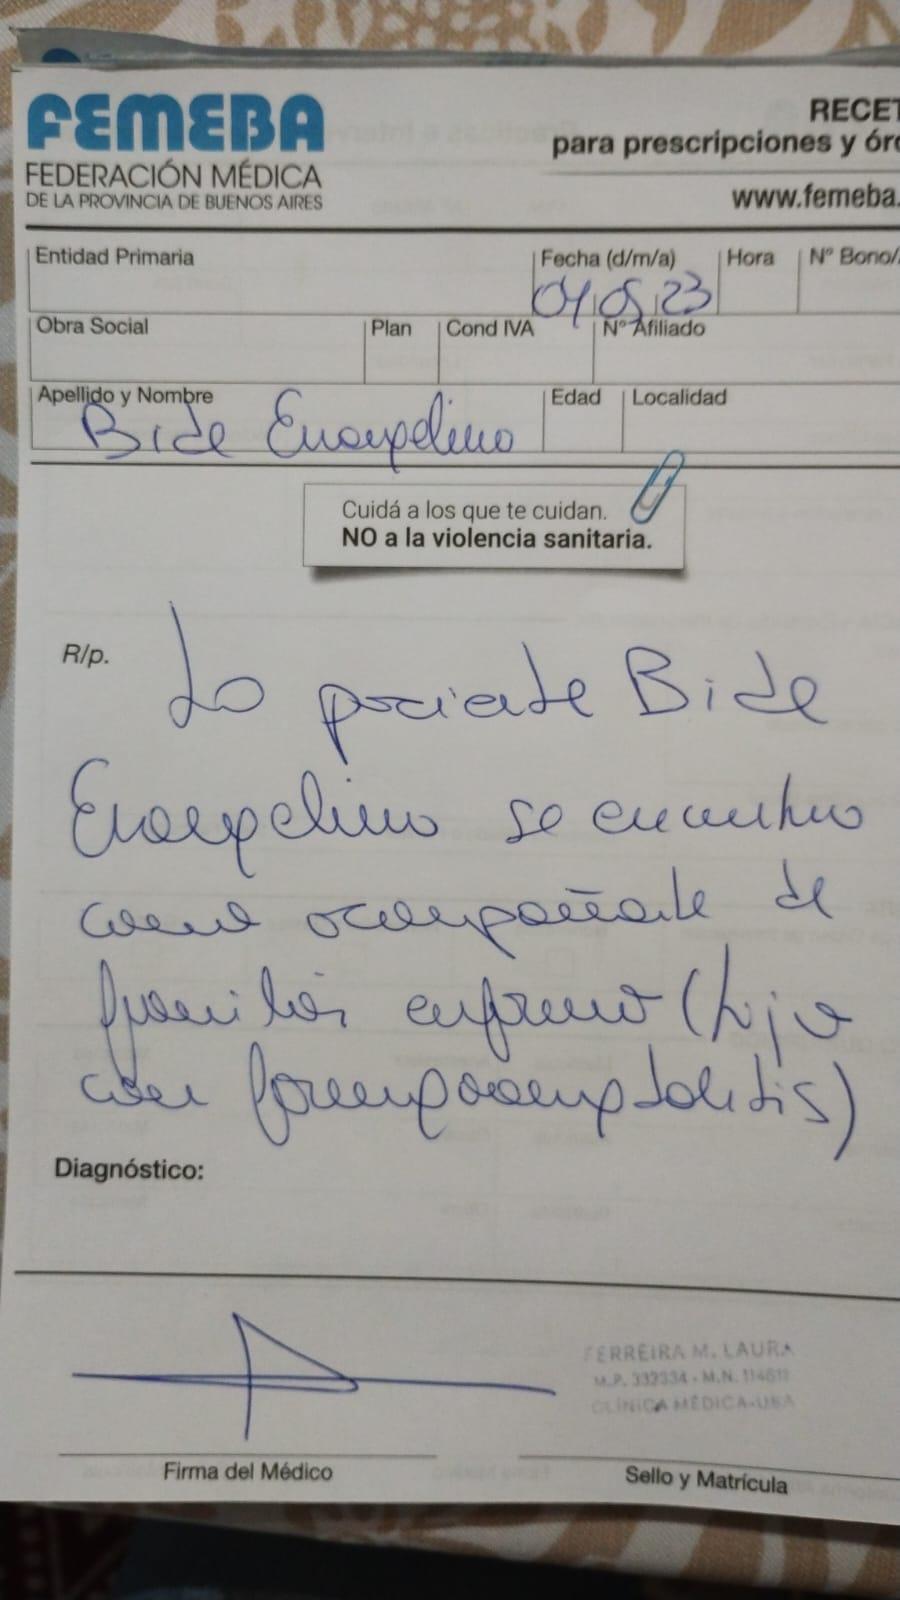 FEMEBA
FEDERACIÓN MÉDICA
DE LA PROVINCIA DE BUENOS AIRES
RECET
para prescripciones y órd
www.femeba.
Entidad Primaria
Fecha (d/m/a) Hora N° Bono/
04 05 23
Obra Social Plan Cond IVA N° Afiliado
Apellido y Nombre Edad Localidad
Bide Evangelina
Cuidá a los que te cuidan.
NO a la violencia sanitaria.
R/p. La paciente Bide
Evangelina se encuentra
como acompañante de
familiar enfermo (hija
con faringoamigdalitis)
Diagnóstico:
FERREIRA M. LAURA
M.P. 332334 - M.N. 114612
CLÍNICA MÉDICA-UBA
Firma del Médico
Sello y Matrícula